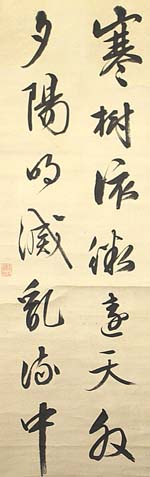 寒樹依微遠天外
夕陽明滅乱流中